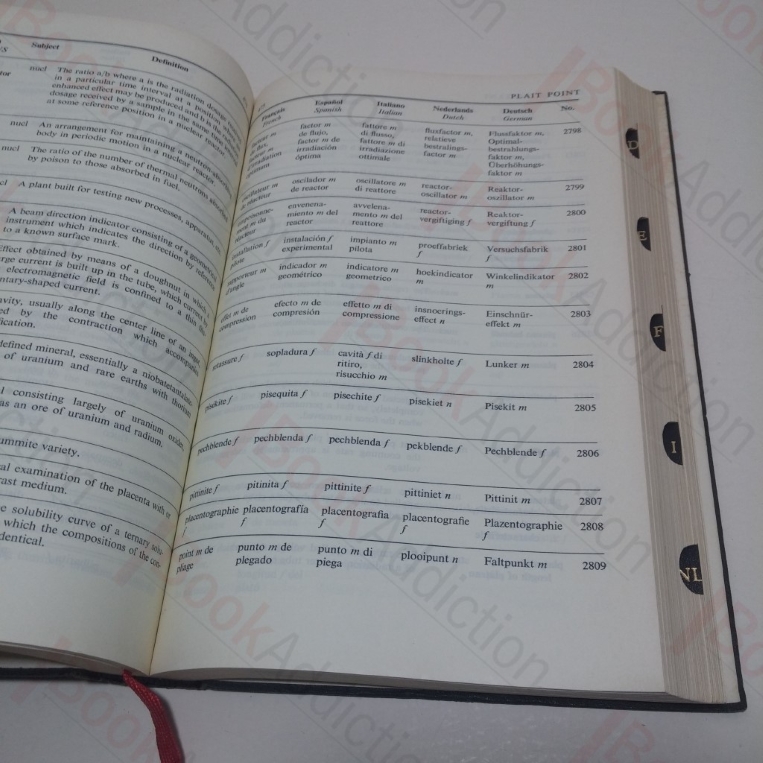 Subject
Definition
nucl The ratio a/b where a is the radiation dosage
in a particular time interval at a point where
enhanced effect may be produced and b is the
dosage received by a sample in the same time
at some reference position in a nuclear reactor
nucl An arrangement for maintaining a neutron
body in periodic motion in a nuclear reactor
nucl The ratio of the number of thermal neutrons absorbed
by poison to those absorbed in fuel.
A plant built for testing new processes, apparatus,
A beam direction indicator consisting of a
instrument which indicates the direction by reference
to a known surface mark.
ffect obtained by means of a doughnut in which a
rge current is built up in the tube, which
electromagnetic field is confined to a thin
ntary-shaped current.
avity, usually along the center line of an ingot
ed by the contraction which
ication.
defined mineral, essentially a
of uranium and rare earths with thorium
l consisting largely of uranium oxide,
as an ore of uranium and radium.
ummite variety.
al examination of the placenta with or
rast medium.
e solubility curve of a ternary
which the compositions of the
dentical.
PLAIT POINT
Français Español Italiano Nederlands Deutsch No.
French Spanish Italian Dutch German
factor m fattore m fluxfactor m, Flussfaktor m, 2798
de flujo, di flusso, relatieve Optimal-
factor m de fattore m di bestralings- bestrahlungs-
irradiación irradiazione factor m faktor m,
óptima ottimale Überhöhungs-
faktor m
oscilador m oscillatore m reactor- Reaktor- 2799
de reactor di reattore oscillator m oszillator m
envenena- avvelena- reactor- Reaktor- 2800
miento m del mento m del vergiftiging f vergiftung f
reactor reattore
installation f instalación f impianto m proeffabriek Versuchsfabrik 2801
experimental pilota f f
indicador m indicatore m hoekindicator Winkelindikator 2802
d'angle geométrico geometrico m m
effet m de efecto m de effetto m di insnoerings- Einschnür- 2803
compression compresión compressione effect n effekt m
sopladura f cavità f di slinkholte f Lunker m 2804
ritiro,
risucchio m
pisekite f pisequita f pisechite f pisekiet n Pisekit m 2805
pechblende f pechblenda f pechblenda f pekblende f Pechblende f 2806
pittinite f pitinita f pittinite f pittiniet n Pittinit m 2807
placentographie placentografía placentografia placentografie Plazentographie 2808
f f f f f
point m de punto m de punto m di plooipunt n Faltpunkt m 2809
pliage plegado piega
D
E
F
I
NL
BookAddiction